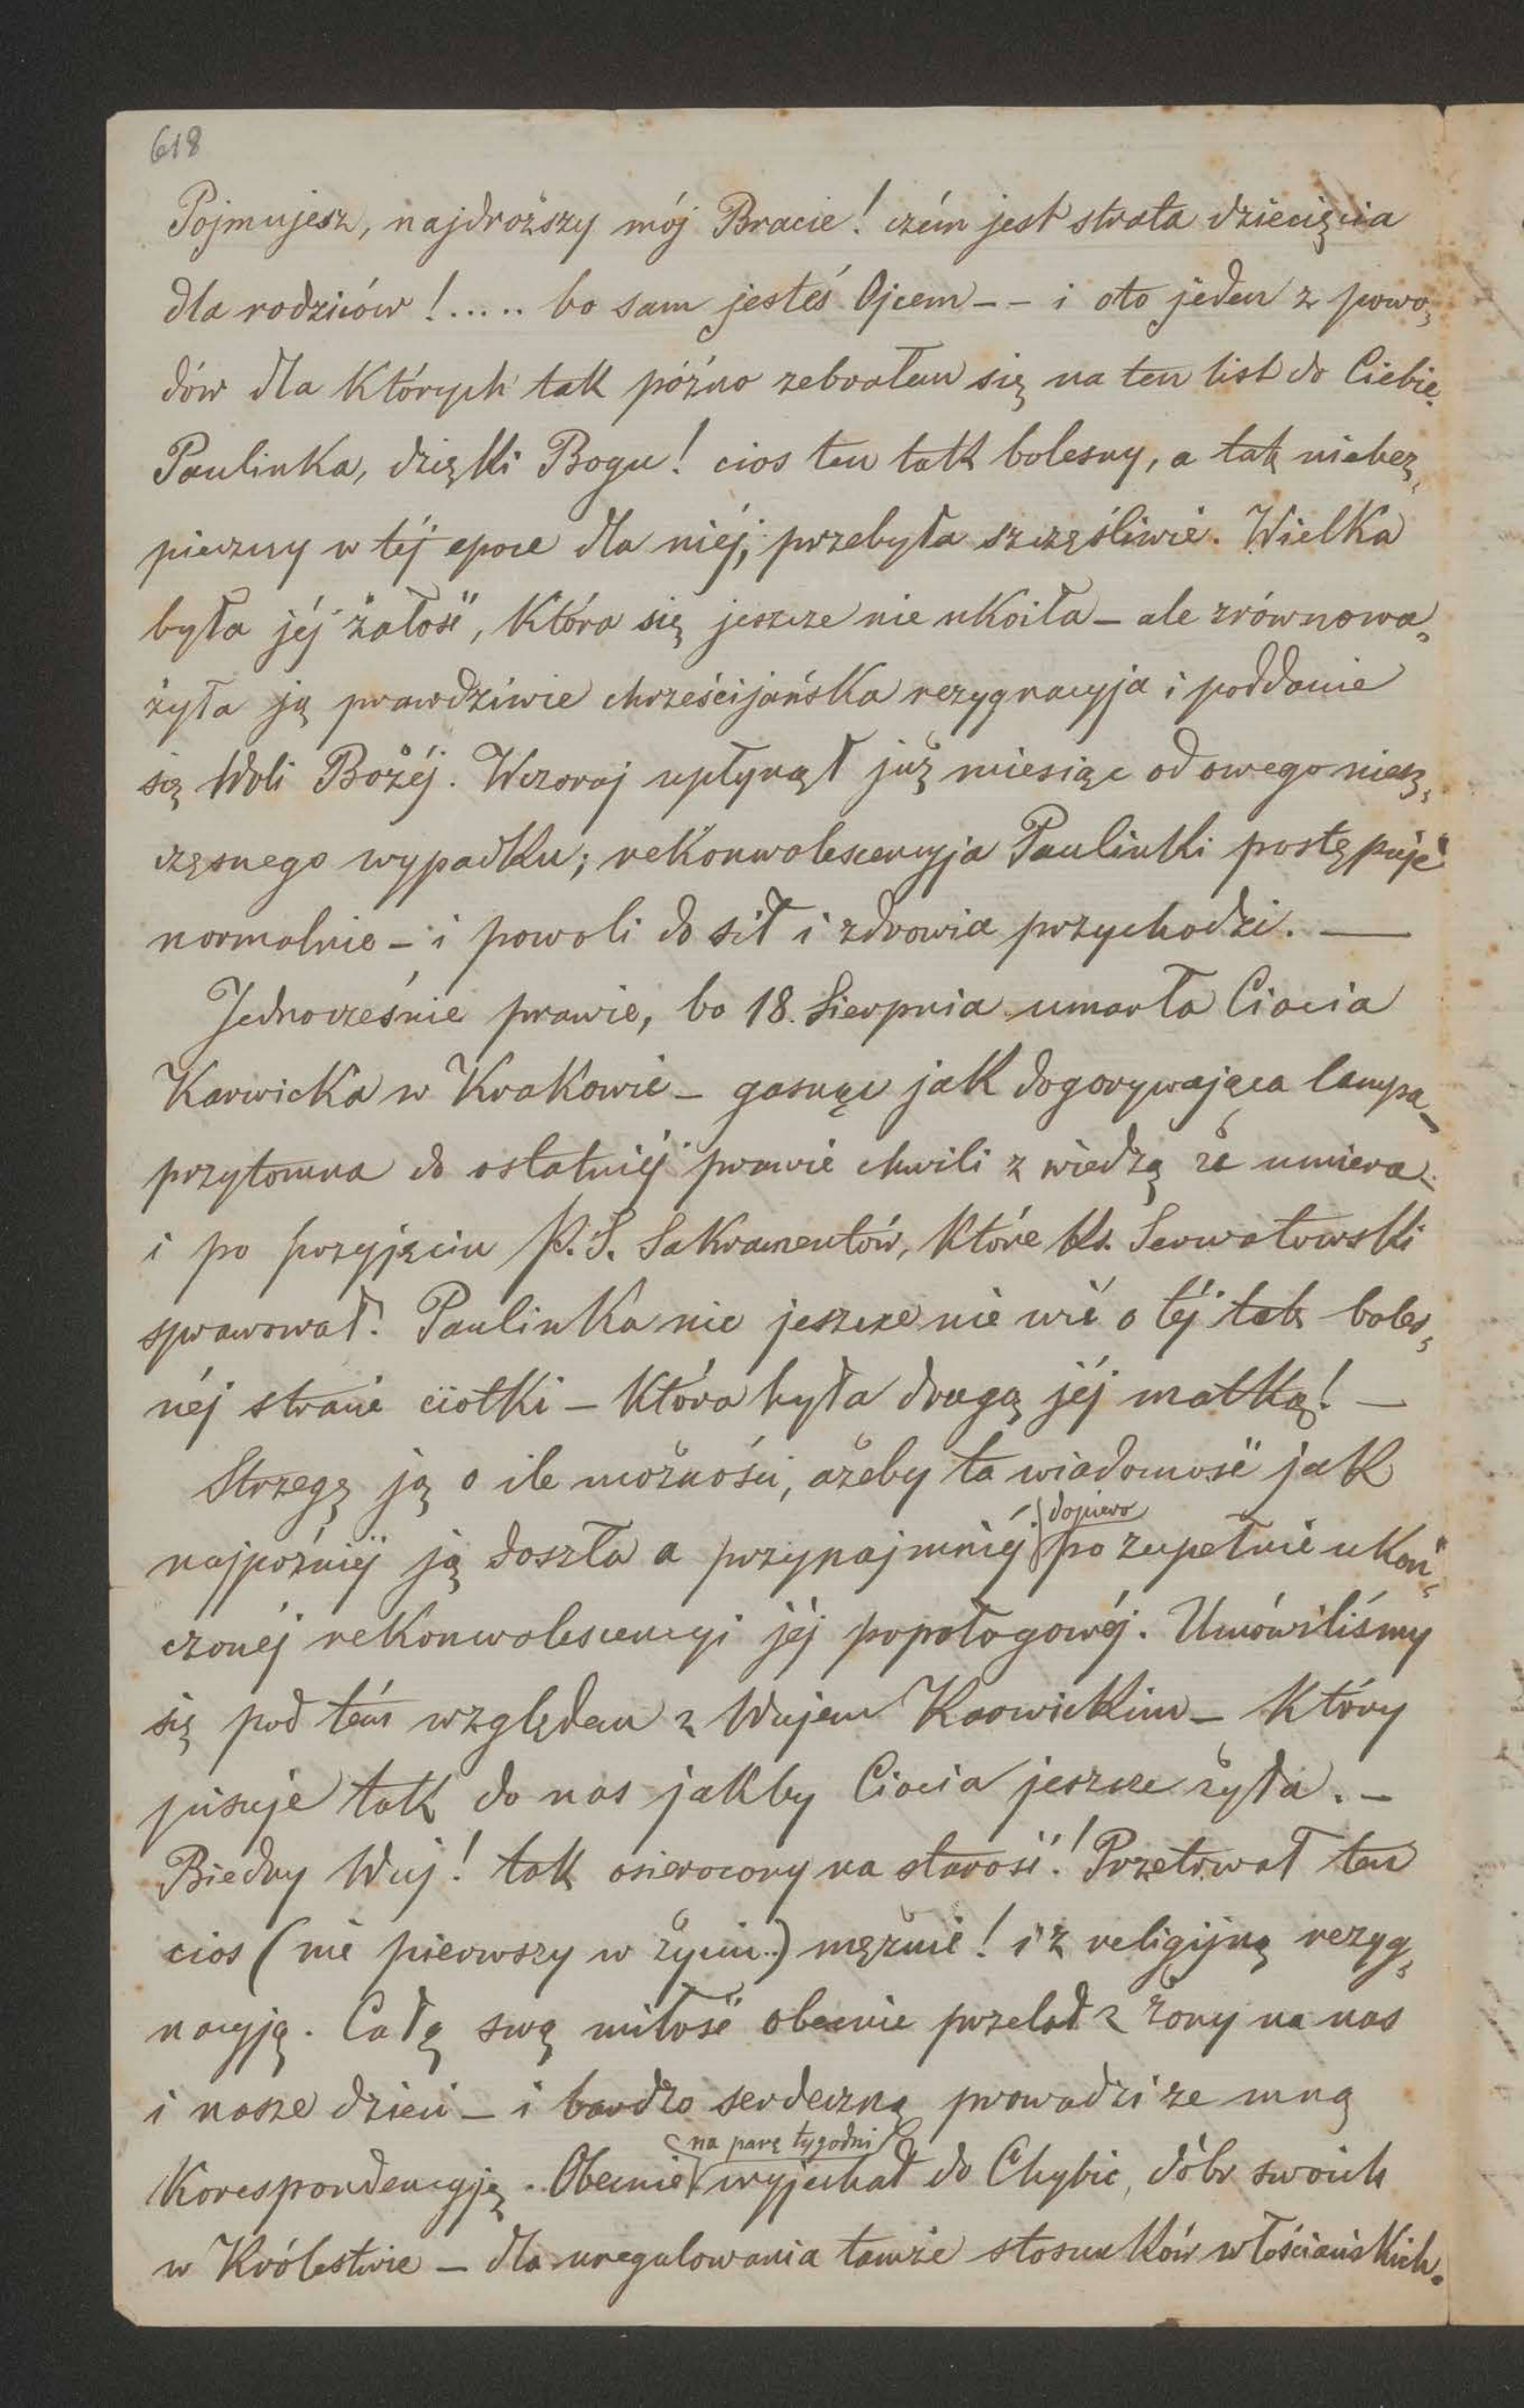 618
Pojmujesz, najdroższy mój Bracie! czém jest strata dziecięcia
dla rodziców!..... bo sam jesteś Ojcem -- i oto jeden z powo„
dów dla których tak późno zebrałem się na ten list do Ciebie.
Paulinka, dzięki Bogu! cios ten tak bolesny, a tak niebez„
pieczny w téj epoce dla niéj, przebyła szczęśliwie. Wielka
była jéj żałość, która się jeszcze nie ukoiła – ale zrównowa„
żyła ją prawdziwie chrześcijańska rezygnacyja i poddanie
się Woli Bożéj. Wczoraj upłynął już miesiąc od owego niesz„
częsnego wypadku; rekonwalescencyja Paulinki postępuje
normalnie – i powoli do sił i zdrowia przychodzi. —
Jednocześnie prawie, bo 18. Sierpnia umarła Ciocia
Karwicka w Krakowie – gasnąc jak dogorywająca lampa –
przytomna do ostatniéj prawie chwili z wiedzą że umiera –
i po przyjęciu P. S. Sakramentów, które Ks. Serwatowski
sprawował. Paulinka nic jeszcze nie wié o téj tak boles„
néj stracie ciotki – która była drugą jéj matką! —
Strzegę ją o ile możności, ażeby ta wiadomość jak
najpóźniéj ją doszła a przynajmniéj dopiero po zupełnie ukoń„
czonéj rekonwalescencyi jéj popołogowéj. Umówiliśmy
się pod tém względem z Wujem Karwickim – który
pisuje tak do nas jakby Ciocia jeszcze żyła. –
Biedny Wuj! tak osierocony na starość! Przetrwał ten
cios (nie pierwszy w życiu..) mężnie! i z religijną rezyg„
nacyją. Całą swą miłość obecnie przelał z żony na nas
i nasze dzieci – i bardzo serdeczną prowadzi ze mną
Korespondencyję. Obecnie na parę tygodni wyjechał do Chybic, dóbr swoich
w Królestwie – dla uregulowania tamże stosunków włościańskich.